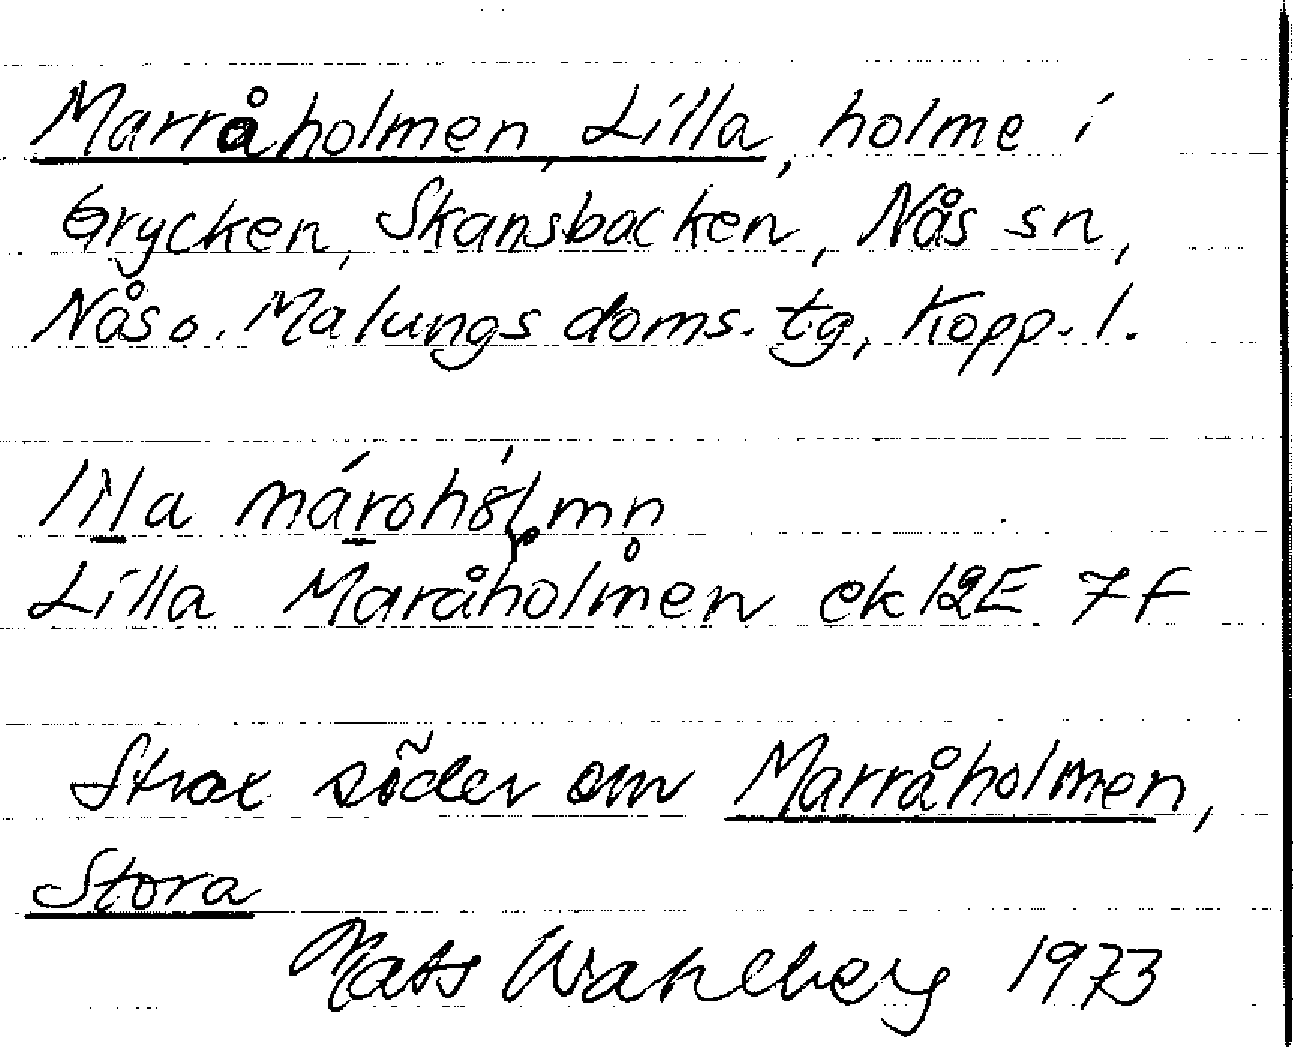 Marråholmen, Lilla, holme i
Grycken, Skansbacken, Nås sn,
Nås o. Malungs doms. tg, Kopp. l.
lila
Lilla Maråholmen ek 12E 7f
Strax söder om Marråholmen,
Stora
Mats Wahlberg 1973